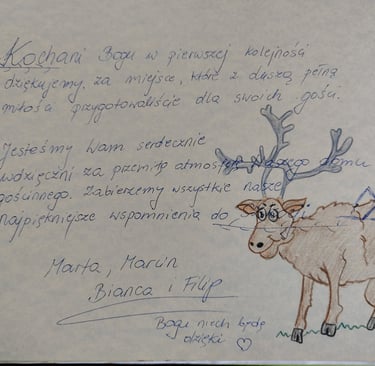 Kochani Bogu w pierwszej kolejności
dziękujemy, za miejsce, które z duszą pełną
miłości przygotowaliście dla swoich gości.
Jesteśmy Wam serdecznie
wdzięczni za przemiłą atmosferę Waszego domu
gościnnego. Zabierzemy wszystkie nasze
najpiękniejsze wspomnienia do
Marta, Marcin
Bianca i Filip
Bogu niech będą
dzięki